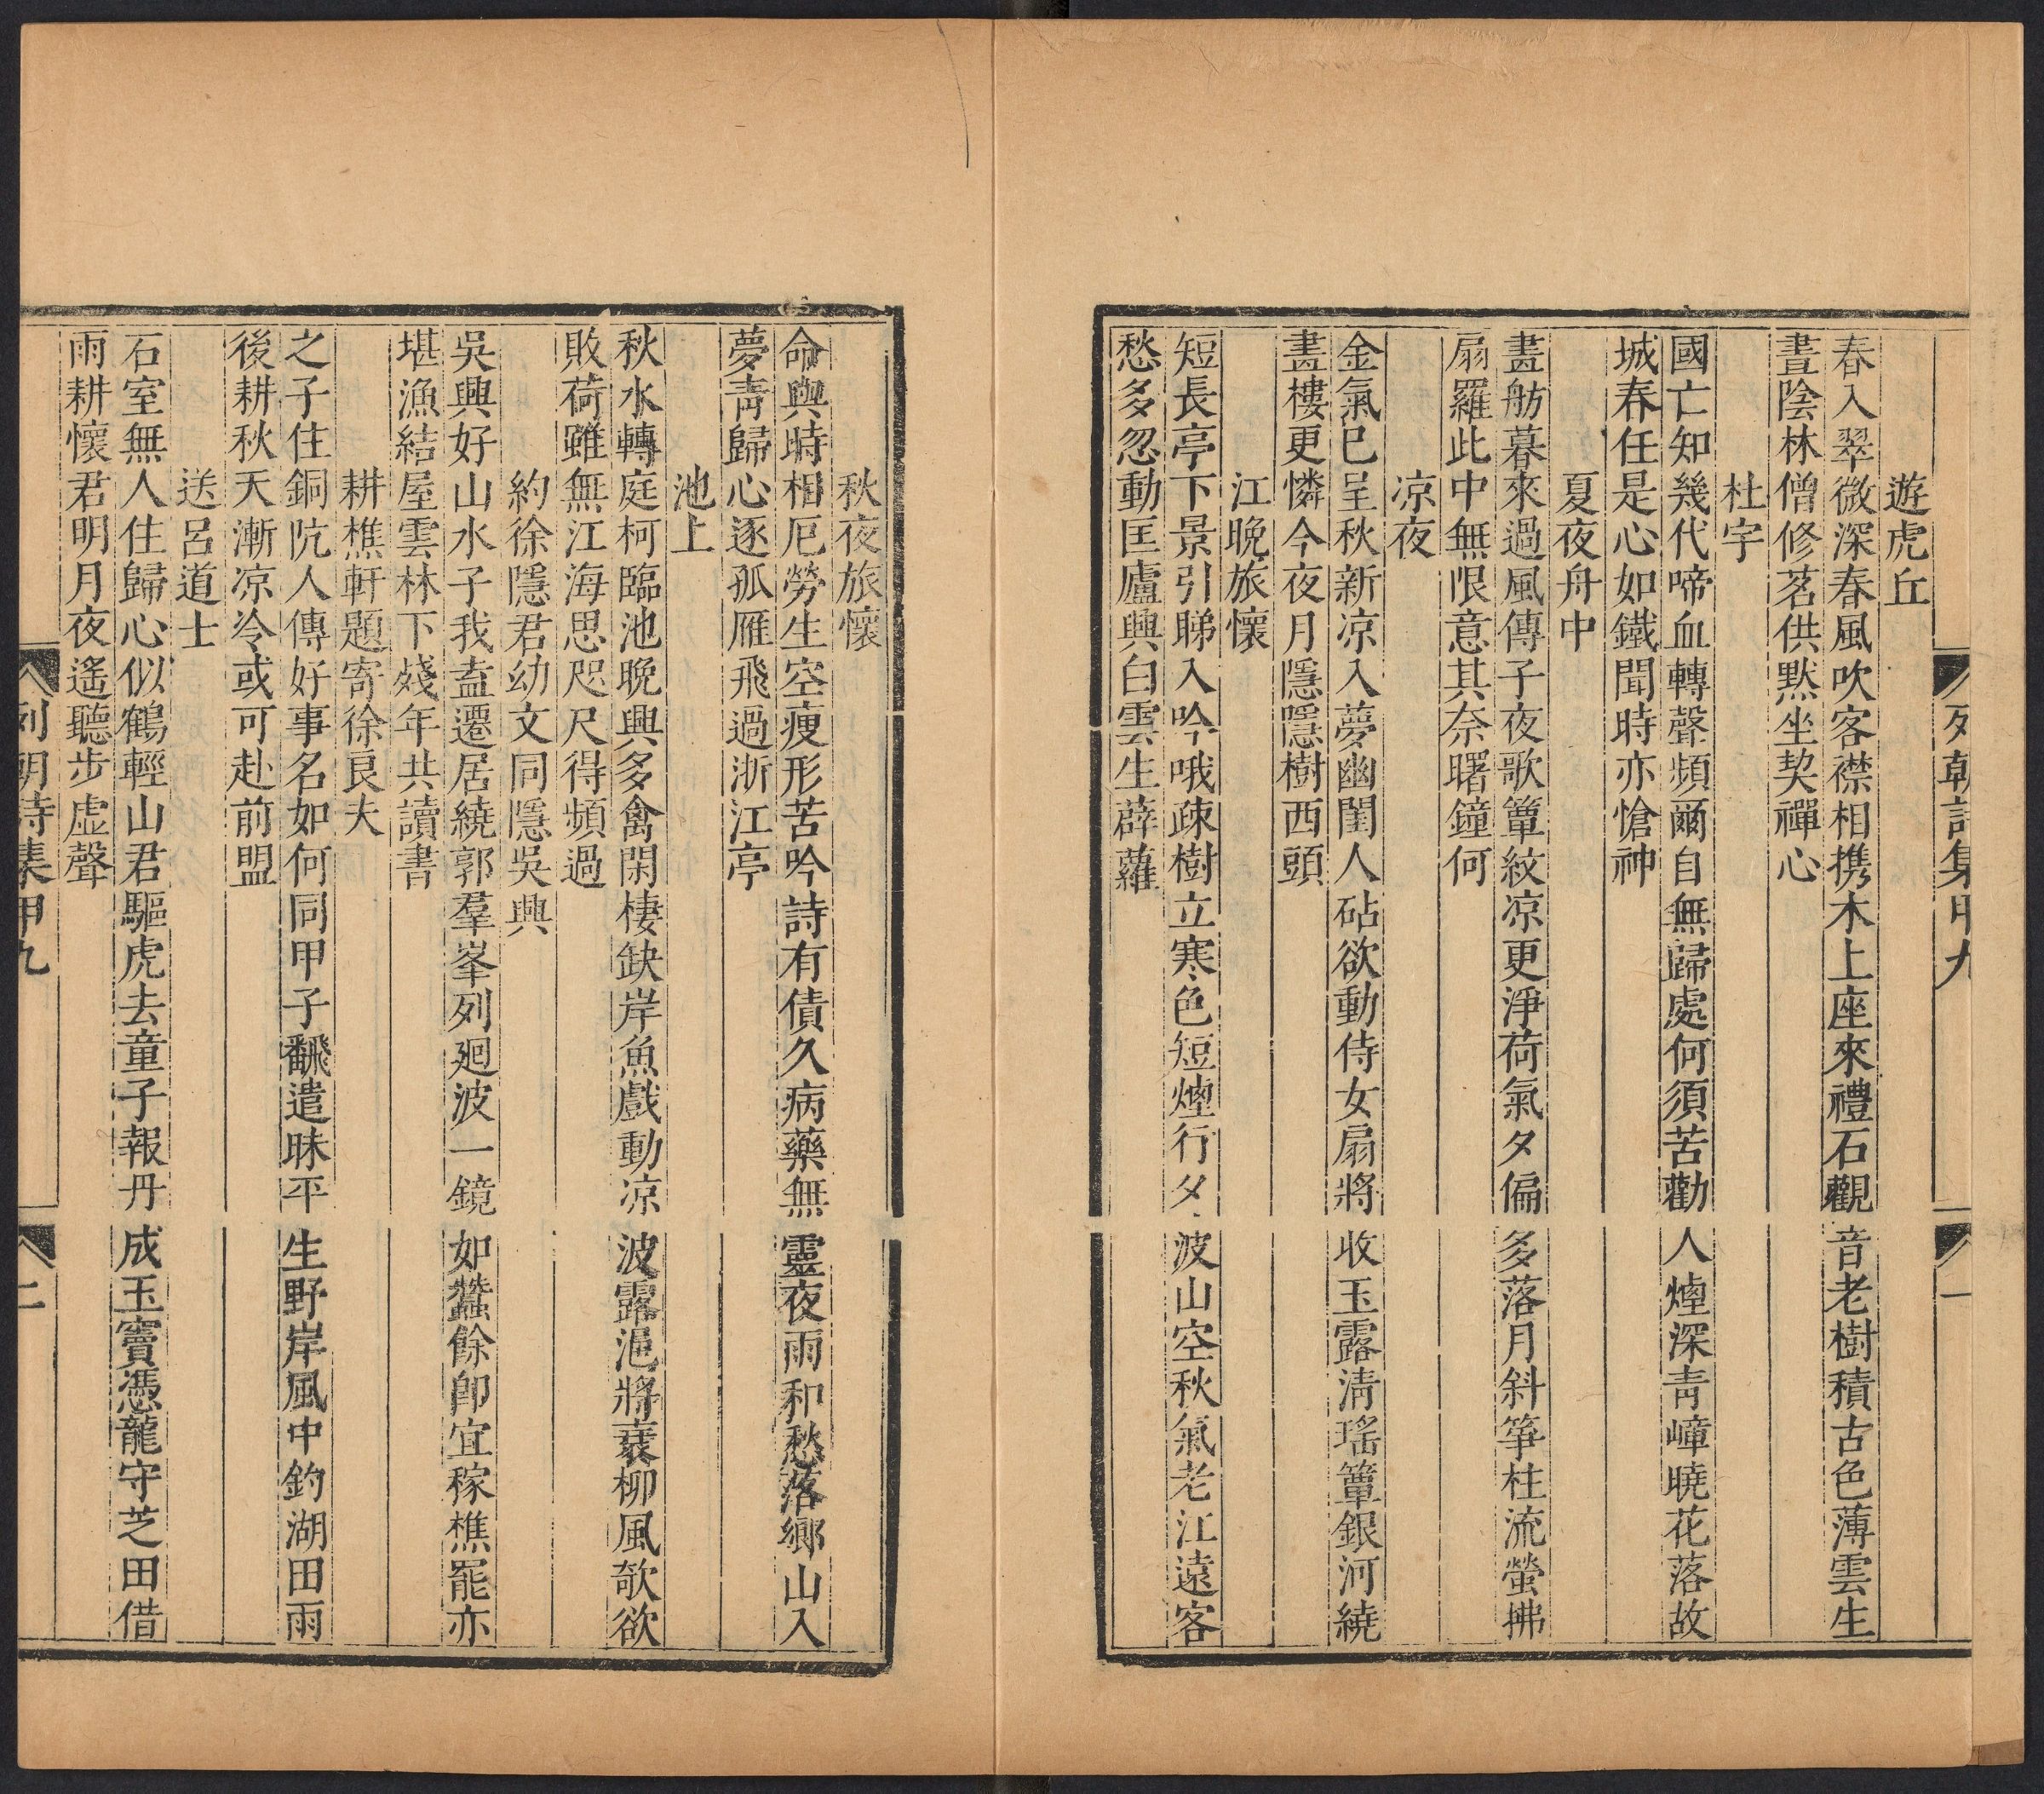 列朝詩集甲九
一
遊虎丘
春入翠微深春風吹客襟相携木上座來禮石觀音老樹積古色薄雲生
晝陰林僧修茗供黙坐契禪心
杜宇
國亡知幾代啼血轉聲頻爾自無歸處何須苦勸人煙深青嶂曉花落故
城春任是心如鐵聞時亦愴神
夏夜舟中
畫舫暮來過風傳子夜歌簟紋凉更淨荷氣夕偏多落月斜箏柱流螢拂
扇羅此中無限意其奈曙鐘何
凉夜
金氣已呈秋新凉入夢幽閨人砧欲動侍女扇將收玉露淸瑤簟銀河繞
畫樓更憐今夜月隱隱樹西頭
江晚旅懷
短長亭下景引睇入吟哦疎樹立寒色短煙行夕波山空秋氣老江遠客
愁多忽動匡廬興白雲生薜蘿
秋夜旅懷
命與時相厄勞生空瘦形苦吟詩有債久病藥無靈夜雨和愁落鄉山入
夢靑歸心逐孤雁飛過浙江亭
池上
秋水轉庭柯臨池晚興多禽閑棲缺岸魚戲動凉波露浥將衰柳風欹欲
敗荷雖無江海思咫尺得頻過
約徐隱君幼文同隱吳興
吳興好山水子我盍遷居繞郭羣峯列廻波一鏡如蠶餘卽宜稼樵罷亦
堪漁結屋雲林下殘年共讀書
耕樵軒題寄徐良夫
之子住銅阬人傳好事名如何同甲子翻遣昧平生野岸風中釣湖田雨
後耕秋天漸凉冷或可赴前盟
送呂道士
石室無人住歸心似鶴輕山君驅虎去童子報丹成玉竇憑龍守芝田借
雨耕懷君明月夜遙聽步虛聲
列朝詩集甲九
二